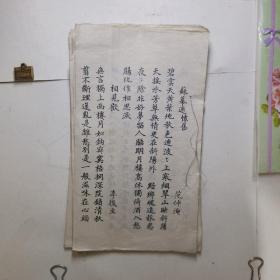 蘇幕遮懷舊
范仲淹
碧雲天黃葉地秋色連波〻上寒烟翠山映斜陽
天接水芳草無情更在斜陽外 黯鄉魂追旅思
夜〻除非好夢留人睡明月樓高休獨倚酒入愁
腸化作相思淚
相見歡 李後主
無言獨上西樓月如鈎寂寞梧桐深院鎖清秋
剪不斷理還亂是離愁別是一般滋味在心頭